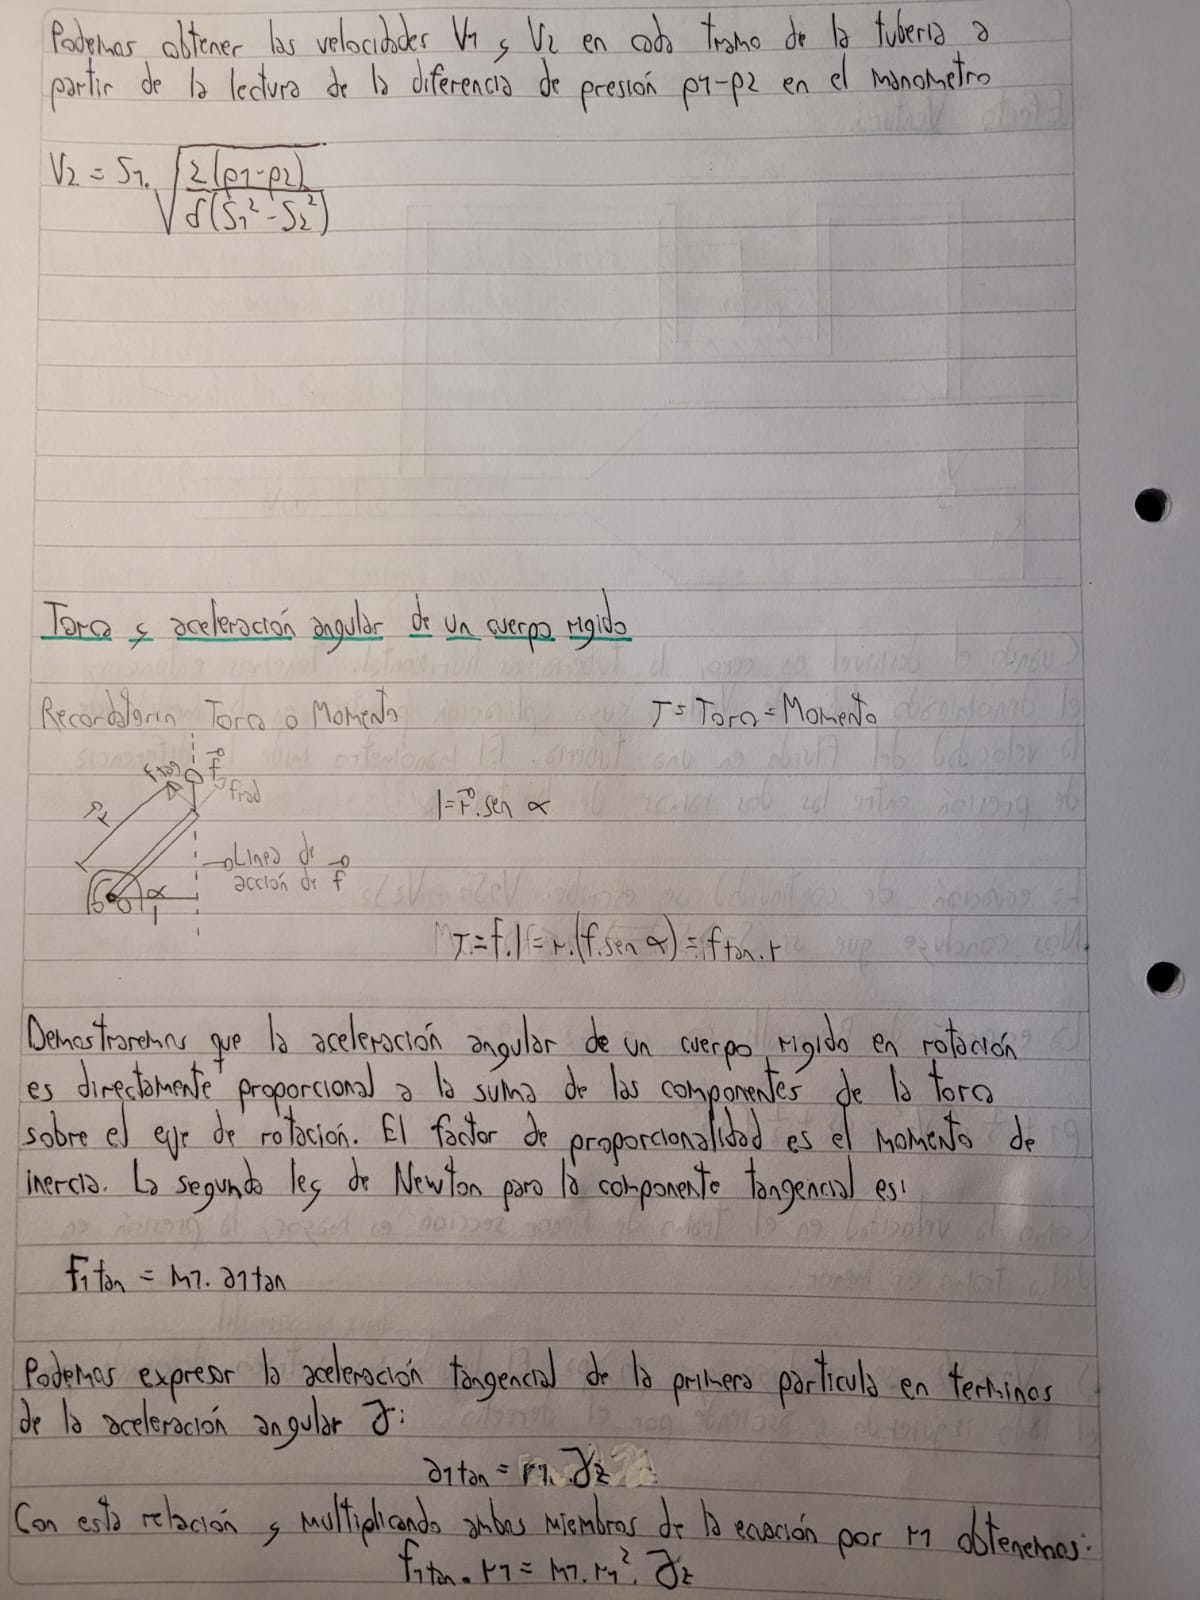 Podemos obtener las velocidades V1 y V2 en cada tramo de la tuberia a
partir de la lectura de la diferencia de presión p1-p2 en el manometro
V2 = S1. √(2(p1-p2) / δ(S1² - S2²))
Torca y aceleración angular de un cuerpo rigido
Recordatorio Torca o Momento T = Torca = Momento
Ftag f
frad
l = r.sen α
Linea de
acción de f
α
l
T = f.l = r.(f.sen α) = f tan.r
Demostraremos que la aceleración angular de un cuerpo rigido en rotación
es directamente proporcional a la suma de las componentes de la torca
sobre el eje de rotación. El factor de proporcionalidad es el momento de
inercia. La segunda ley de Newton para la componente tangencial es:
F1 tan = m1. a1 tan
Podemos expresar la aceleración tangencial de la primera particula en terminos
de la aceleración angular γ:
a1 tan = r1. γz
Con esta relación y multiplicando ambos miembros de la ecuación por r1 obtenemos:
f1 tan. r1 = m1. r1². γz